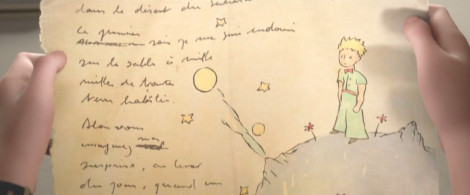 dans le désert du Sahara
Le premier
soir je me suis endormi
sur le sable à mille
milles de toute
terre habitée.
Alors vous
imaginez ma
surprise, au lever
du jour, quand un